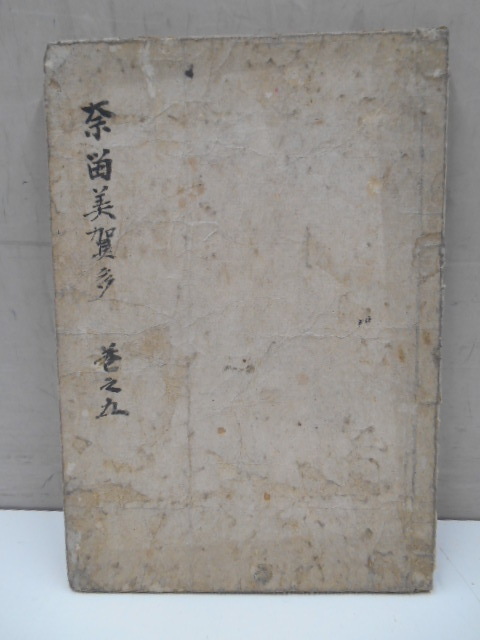 奈畄美賀多 巻之九